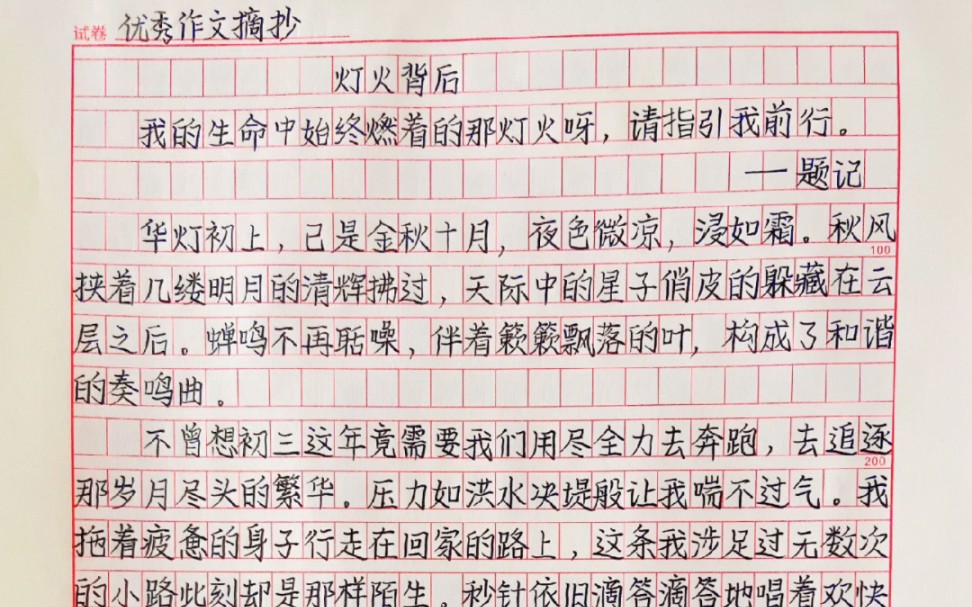 试卷 优秀作文摘抄
灯火背后
我的生命中始终燃着的那灯火呀，请指引我前行。
—题记
华灯初上，已是金秋十月，夜色微凉，浸如霜。秋风
100
挟着几缕明月的清辉拂过，天际中的星子俏皮的躲藏在云
层之后。蝉鸣不再聒噪，伴着簌簌飘落的叶，构成了和谐
的奏鸣曲。
不曾想初三这年竟需要我们用尽全力去奔跑，去追逐
200
那岁月尽头的繁华。压力如洪水决堤般让我喘不过气。我
拖着疲惫的身子行走在回家的路上，这条我涉足过无数次
的小路此刻却是那样陌生。秒针依旧滴答滴答地唱着欢快